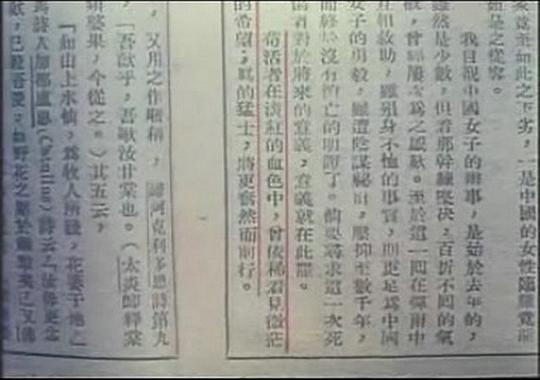 竟至如此之下劣,一是中國的女性臨難竟能
如是之從容。
我目覩中國女子的辦事,是始於去年的,
雖然是少數,但看那幹練堅決,百折不回的氣
概,曾經屢次爲之感歎。至於這一回在彈雨中
互相救助,雖殞身不恤的事實,則更足爲中國
女子的勇毅,雖遭陰謀秘計,壓抑至數千年,
而終於沒有消亡的明證了。倘要尋求這一次死
傷者對於將來的意義,意義就在此罷。
苟活者在淡紅的血色中,會依稀看見微茫
的希望;眞的猛士,將更奮然而前行。
又用之作,阿克利多恩詩第九
「吾獻乎,吾獻汝甘棠也。(太炎師釋棠
果,今從之。)其五云,
「如山上水仙,爲牧人所踐,花萎于地」
馬詩人(Catullus)詩云「汝勿更念
已殺吾愛,如野花之